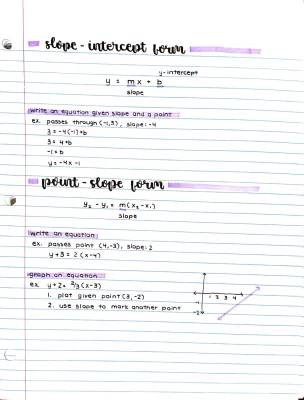 slope-intercept form
y-intercept
y = mx + b
slope
write an equation given slope and a point
ex. passes through (-1,3), slope: -4
3 = -4(-1)+b
3 = 4+b
-1 = b
y = -4x -1
point-slope form
y₂ - y₁ = m(x₂ - x₁)
slope
write an equation
ex. passes point (4,-3), slope: 2
y+3 = 2(x-4)
graph an equation
ex. y+2 = 2/3(x-3)
1. plot given point (3,-2)
2. use slope to mark another point
1 2 3 4
-1
-2